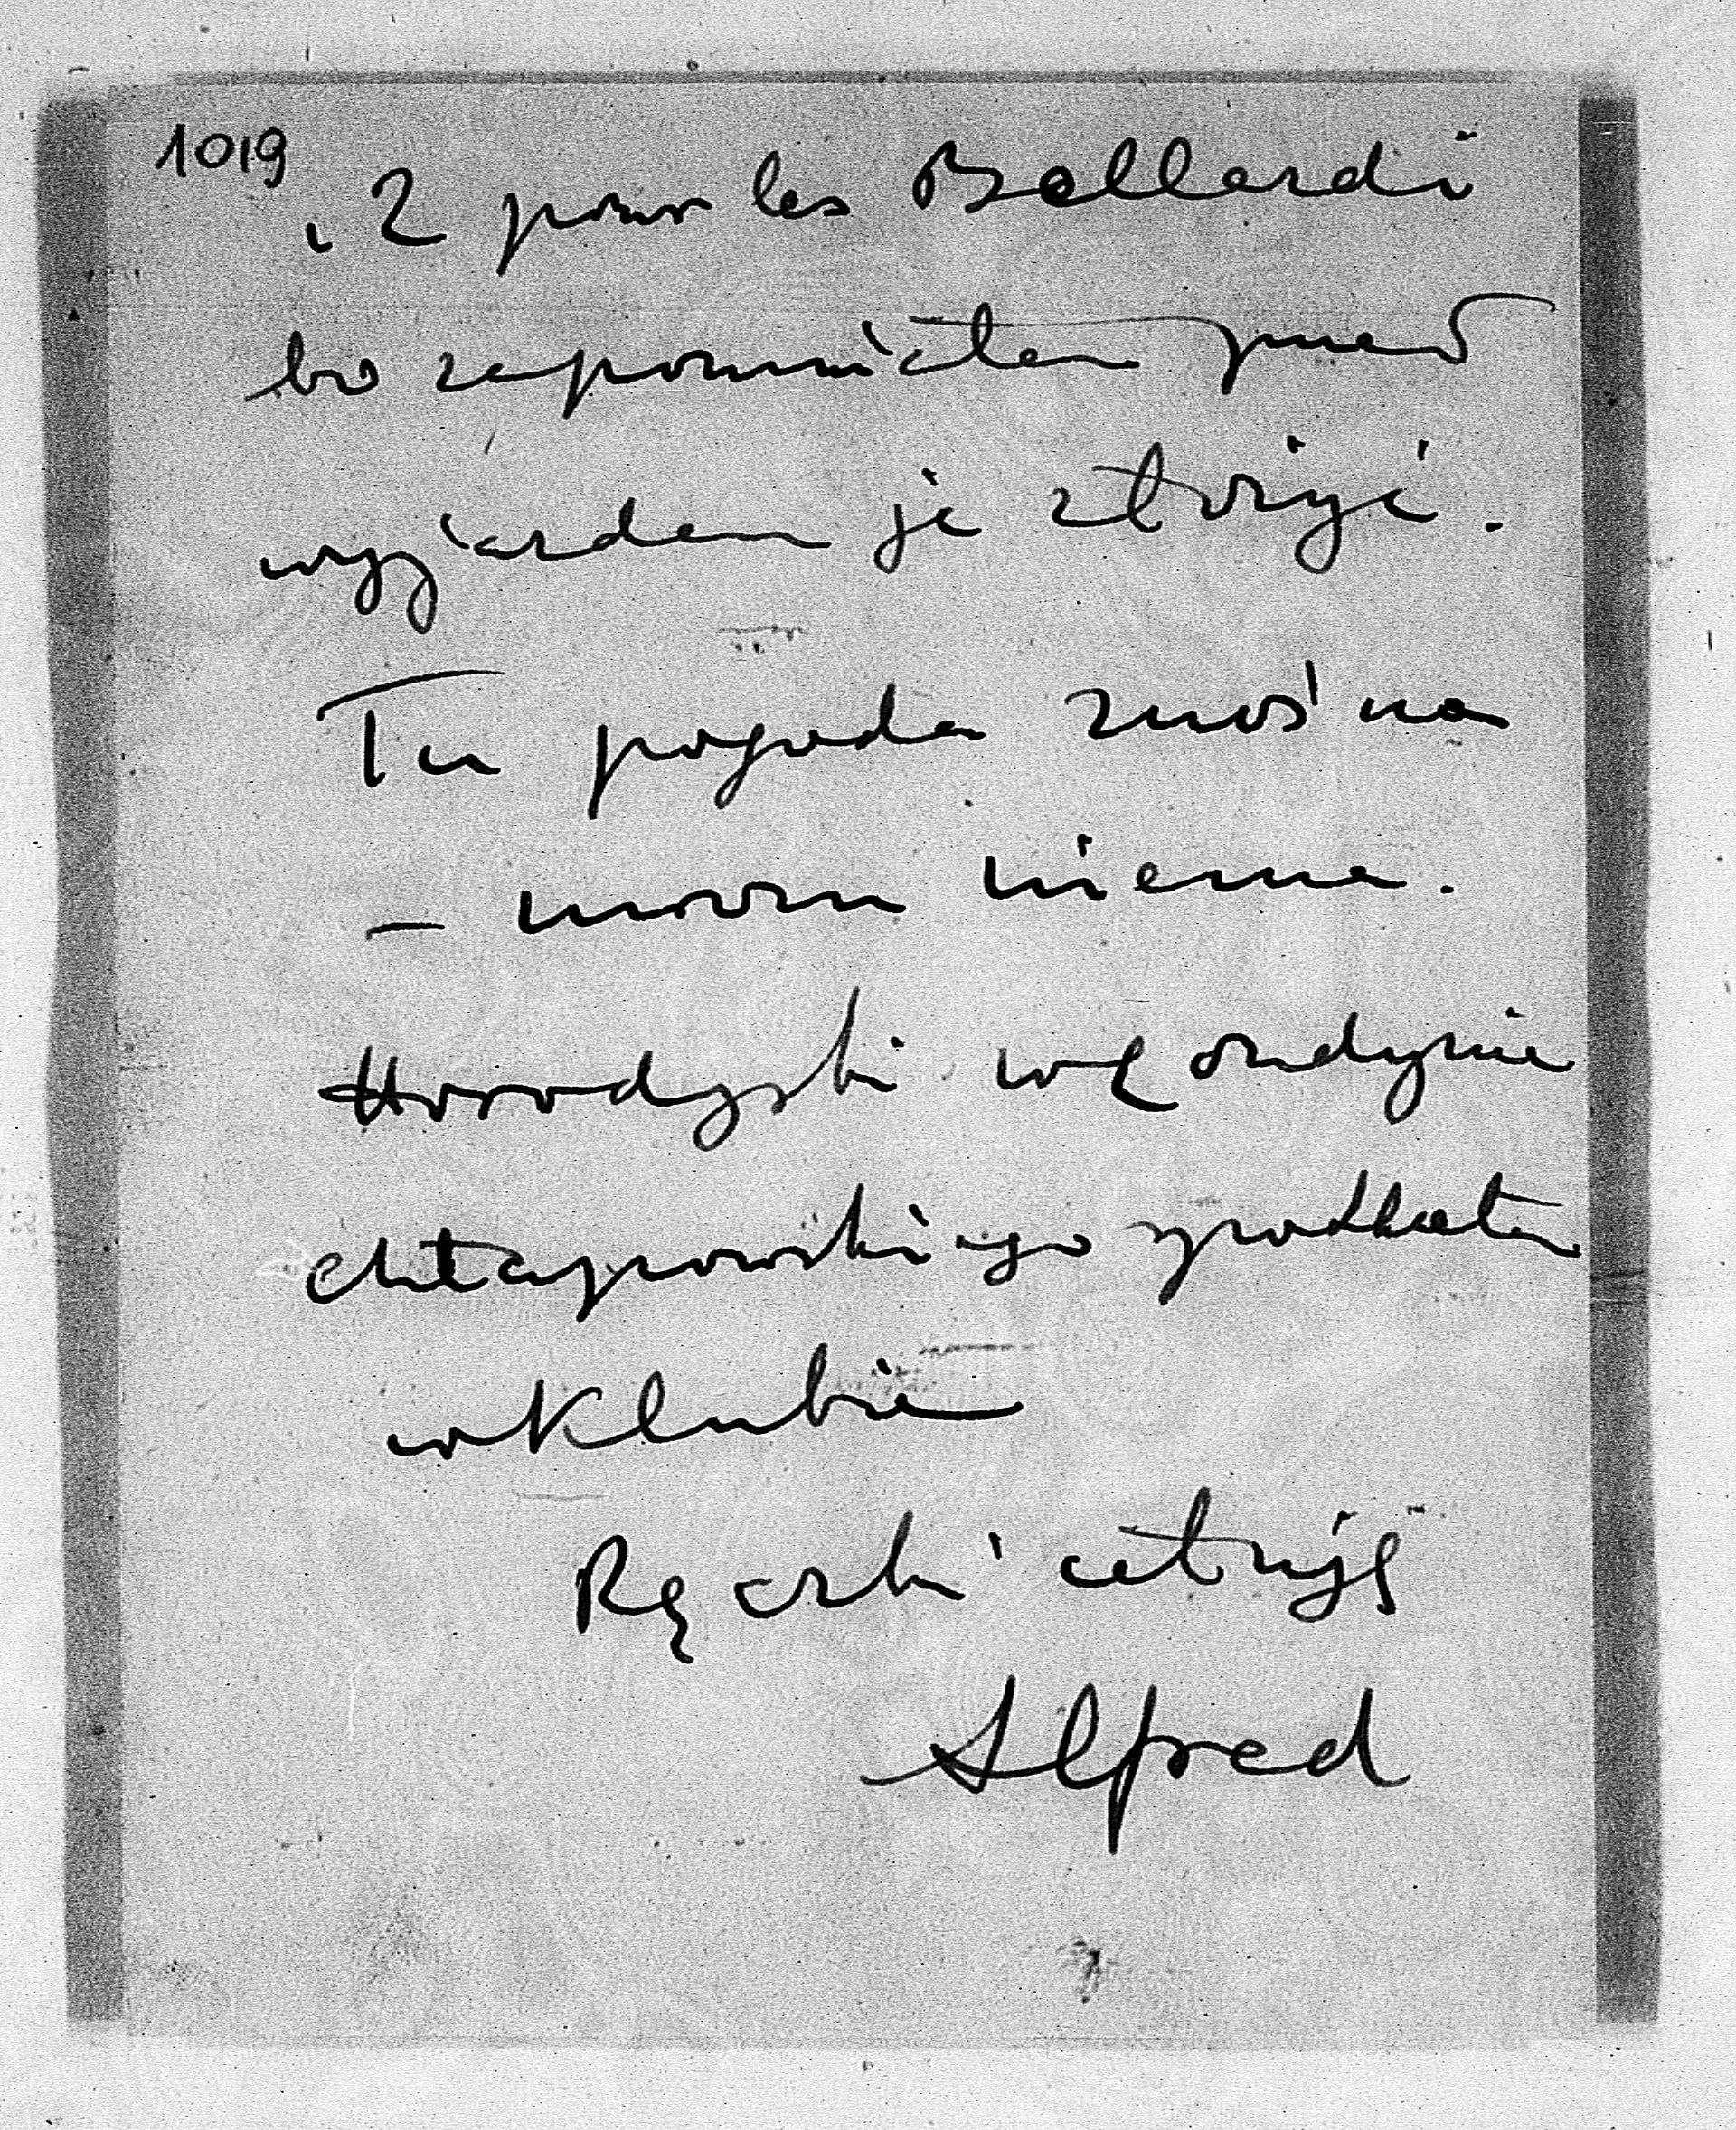 1019
i 2 pour les Ballardi
bo zapomniałem przed
wyjazdem je złożyć.
Tu pogoda znośna
– mrozu niema.
Horodyski w Londynie
Chłapowskiego spotkałem
w Klubie
Rączki całuję
Alfred